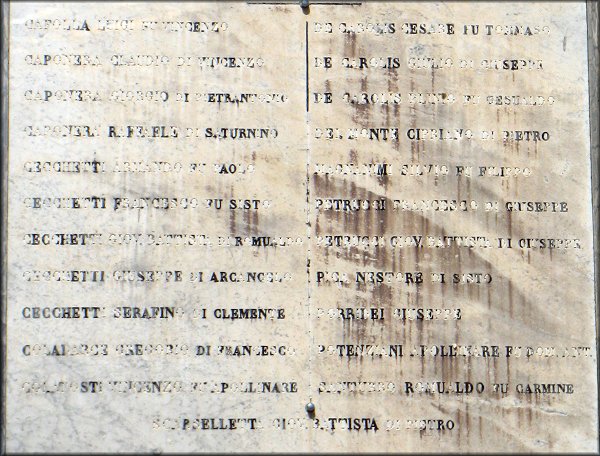 CAFOLLA LUIGI FU VINCENZO
CAPONERA CLAUDIO DI VINCENZO
CAPONERA GIORGIO DI PIETRANTONIO
CAPONERA RAFFAELE DI SATURNINO
CECCHETTI ARMANDO FU PAOLO
CECCHETTI FRANCESCO FU SISTO
CECCHETTI GIOV. BATTISTA DI ROMUALDO
CECCHETTI GIUSEPPE DI ARCANGELO
CECCHETTI SERAFINO DI CLEMENTE
COLAPARCE GREGORIO DI FRANCESCO
VINCENZO FU APOLLINARE
DE CAROLIS CESARE FU TOMMASO
DE CAROLIS GIULIO DI GIUSEPPE
DE CAROLIS FU GESUALDO
DEL MONTE CIPRIANO DI PIETRO
MAGNANIMI SILVIO FU FILIPPO
PETRUCCI FRANCESCO DI GIUSEPPE
PETRUCCI GIOV. BATTISTA DI GIUSEPPE
PICA NESTORE DI SISTO
GIUSEPPE
POTENZIANI APOLLINARE FU
ROMUALDO FU CARMINE
SCAPSELLETTI GIOV. BATTISTA DI PIETRO